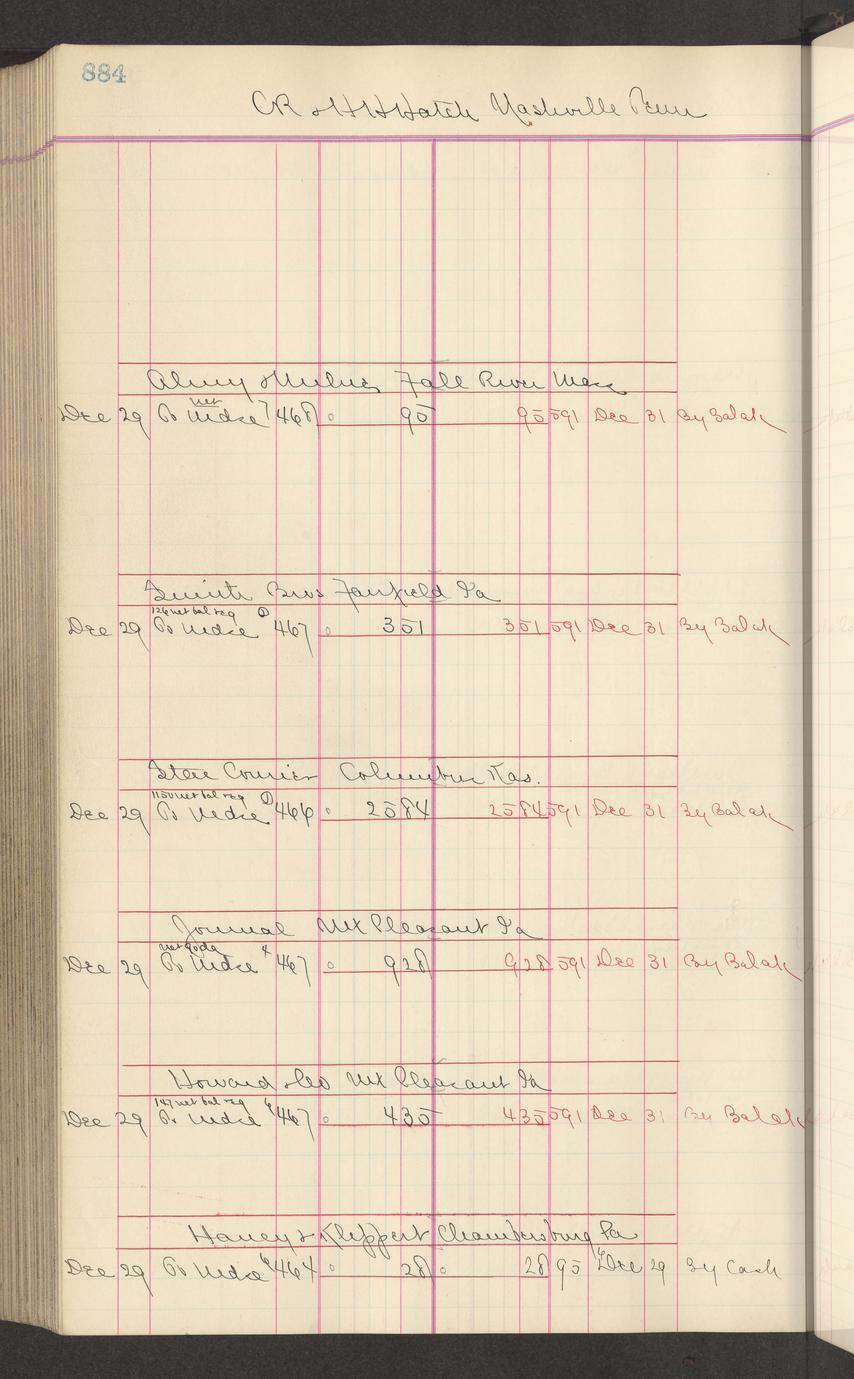 884
CR & HH Hatch Nashville Penn
Almy & Milne Fall River Mass
net
Dec 29 To Mdse 7 468 0 95 95 591 Dec 31 By Balak
Smith Bros Fairfield Ia
126 net bal reg 1
Dec 29 To Mdse 467 0 351 351 591 Dec 31 By Balak
Star Courier Columbus Kas.
1150 net bal reg 1
Dec 29 To Mdse 466 0 2584 2584 591 Dec 31 By Balak
Journal Mt Pleasant Ia
net
Dec 29 To Mdse 4 467 0 928 928 591 Dec 31 By Balak
Howard Leo Mt Pleasant Ia
147 net bal reg
Dec 29 To Mdse 6 467 0 435 435 591 Dec 31 By Balak
Haney & Klippert Chambersburg Pa
Dec 29 To Mdse 6 464 0 28 0 28 95 Dec 29 By Cash